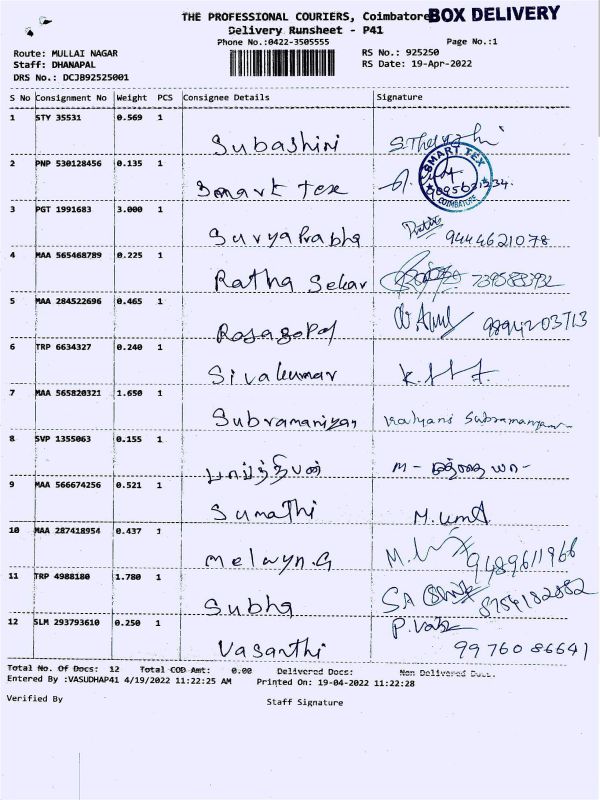 THE PROFESSIONAL COURIERS, Coimbatore BOX DELIVERY
Delivery Runsheet - P41
Phone No.:0422-3505555 Page No.:1
Route: MULLAI NAGAR RS No.: 925250
Staff: DHANAPAL RS Date: 19-Apr-2022
DRS No.: DCJB92525001
S No Consignment No Weight PCS Consignee Details Signature
1 STY 35531 0.569 1
Subashini
2 PNP 530128456 0.135 1
Smart tex SMART TEX COIMBATORE
3 PGT 1991683 3.000 1
Surya Prabha 9444621078
4 MAA 565468789 0.225 1
Ratha Sekar
5 MAA 284522696 0.465 1
Rosagopal 9894203713
6 TRP 6634327 0.240 1
Sivakumar
7 MAA 565820321 1.650 1
Subramaniyan Kalyani Subramaniyam
8 SVP 1355063 0.155 1
பார்த்திபன் M-
9 MAA 566674256 0.521 1
Sumathi M. Uma
10 MAA 287418954 0.437 1
Melwyn.G 9489611966
11 TRP 4988180 1.780 1
Subha SA 8754182882
12 SLM 293793610 0.250 1
Vasanthi 99760 86641
Total No. Of Docs: 12 Total COD Amt: 0.00 Delivered Docs: Non Delivered Docs:
Entered By :VASUDHAP41 4/19/2022 11:22:25 AM Printed On: 19-04-2022 11:22:28
Verified By Staff Signature